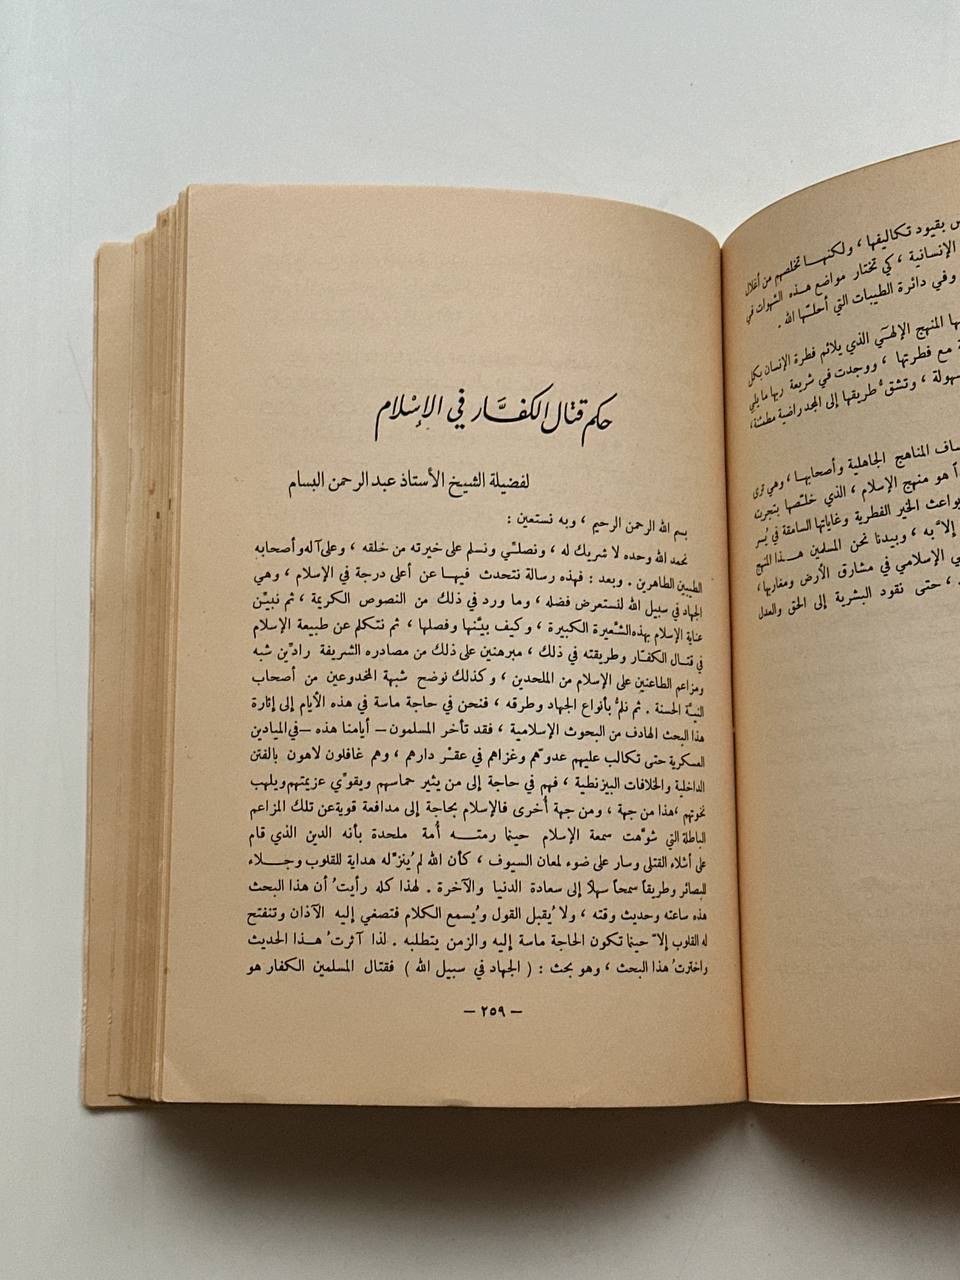 س بقيود تكاليفها ، ولكنهـا تخلصهم من أغلال
الإنسانية ، كي تختار مواضع هـذه الشهوات في
وفي دائرة الطيبات التي أحلتها الله .
ها المنهج الإلهي الذي يلائم فطرة الإنسان بكل
مع فطرتها ، ووجدت في شريعة ربها ما يلي
سهولة ، وتشق طريقها إلى المجد راضية مطمئنة ،
ساف المناهج الجاهلية وأصحابها ، وهي ترى
هو منهج الإسلام ، الذي خلّصها بتجرت
بواعث الخير الفطرية وغاياتها السامقة في يُسر
إلا به ، وبيدنا نحن المسلمين هـذا المنهج
ي الإسلامي في مشارق الأرض ومغاربها ،
، حتى نقود البشرية إلى الحق والعدل
حكم قتال الكفَّار في الإسْلام
لفضيلة الشيخ الأستاذ عبد الرحمن البسام
بسم الله الرحمن الرحيم ، وبه نستعين :
نحمد الله وحده لا شريك له ، ونصلّي ونسلم على خيرته من خلقه ، وعلى آله وأصحابه
الطيبين الطاهرين . وبعد : فهذه رسالة نتحدث فيهـا عن أعلى درجة في الإسلام ، وهي
الجهاد في سبيل الله لنستعرض فضله ، وما ورد في ذلك من النصوص الكريمة ، ثم نبيّن
عناية الإسلام بهذه الشعيرة الكبيرة ، وكيف بيّنها وفصلها ، ثم نتكلم عن طبيعة الإسلام
في قتـال الكفّار وطريقته في ذلك ، مبرهنين على ذلك من مصادره الشريفة رادّين شبه
ومزاعم الطاعنين على الإسلام من الملحدين ، وكذلك نوضح شبهة المخدوعين من أصحاب
النيّة الحسنة . ثم نلمُّ بأنواع الجهاد وطرقه ، فنحن في حاجة ماسة في هذه الأيام إلى إثارة
هذا البحث الهادف من البحوث الإسلامية ، فقد تأخر المسلمون – أيامنا هذه – في الميادين
العسكرية حتى تكالب عليهم عدوّهم وغزاهم في عقـر دارهم ، وهم غافلون لاهون بالفتن
الداخلية والخلافات البيزنطية ، فهم في حاجة إلى من يثير حماسهم ويقوّي عزيمتهم ويلهب
نخوتهم ،هذا من جهة ، ومن جهة أخرى فالإسلام بحاجة إلى مدافعة قوية عن تلك المزاعم
الباطلة التي شوَّهت سمعة الإسلام حينما رمتـــه أُمة ملحدة بأنه الدين الذي قام
على أشلاء القتلى وسار على ضوء لمعان السيوف ، كأن الله لم يُنزّله هداية للقلوب وجـــلاء
للبصائر وطريقاً سمحاً سهلاً إلى سعادة الدنيا والآخرة . لهذا كله رأيتُ أن هذا البحث
هذه ساعته وحديث وقته ، ولا يُقبل القول ويُسمع الكلام فتصغي إليه الآذان وتنفتح
له القلوب إلاّ حينما تكون الحاجة ماسة إليه والزمن يتطلبه . لذا آثرتُ هـــذا الحديث
واخترتُ هذا البحث ، وهو بحث : ( الجهاد في سبيل الله ) فقتال المسلمين الكفار هو
– ٢٥٩ –